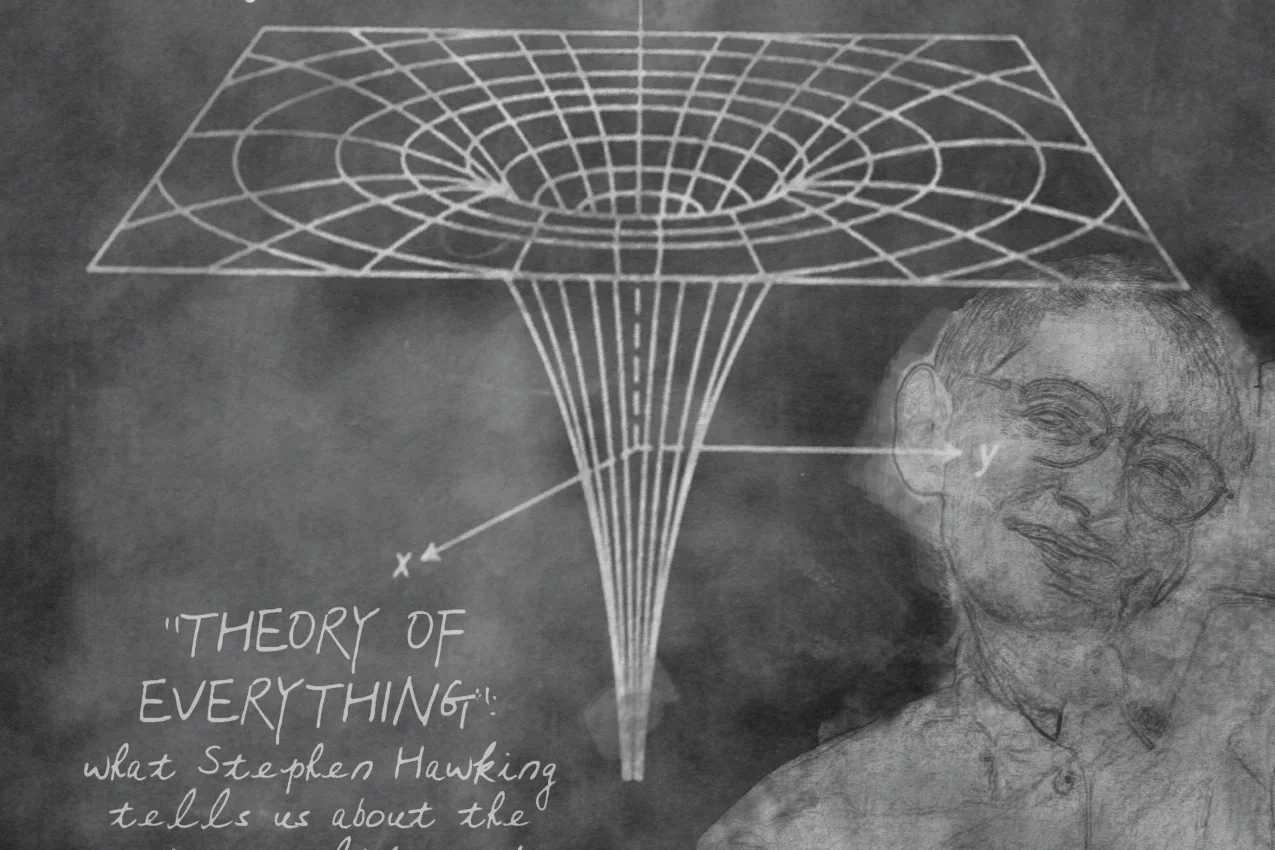 y
x
"THEORY OF
EVERYTHING":
what Stephen Hawking
tells us about the